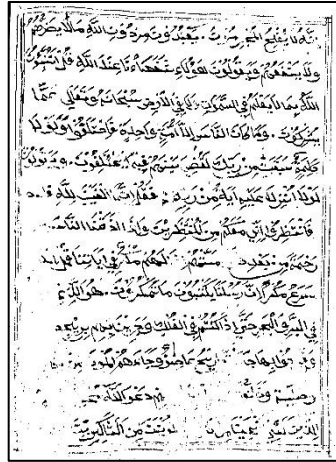 إنه لا يفلح المجرمون ويعبدون من دون الله ما لا يضرهم
ولا ينفعهم ويقولون هؤلاء شفعاؤنا عند الله قل أتنبئون
الله بما لا يعلم في السموات ولا في الأرض سبحانه وتعالى عما
يشركون وما كان الناس إلا أمة واحدة فاختلفوا ولولا
كلمة سبقت من ربك لقضي بينهم فيما فيه يختلفون ويقولون
لولا أنزل عليه آية من ربه فقل إنما الغيب لله
فانتظروا إني معكم من المنتظرين وإذا أذقنا الناس
رحمة من بعد مستهم لهم مكر في آياتنا قل الله
أسرع مكرا إن رسلنا يكتبون ما تمكرون هو الذي
في البر والبحر حتى إذا كنتم في الفلك وجرين بهم بريح
بها ريح عاصف وجاءهم الموج
دعوا الله
الدين لئن من الشاكرين